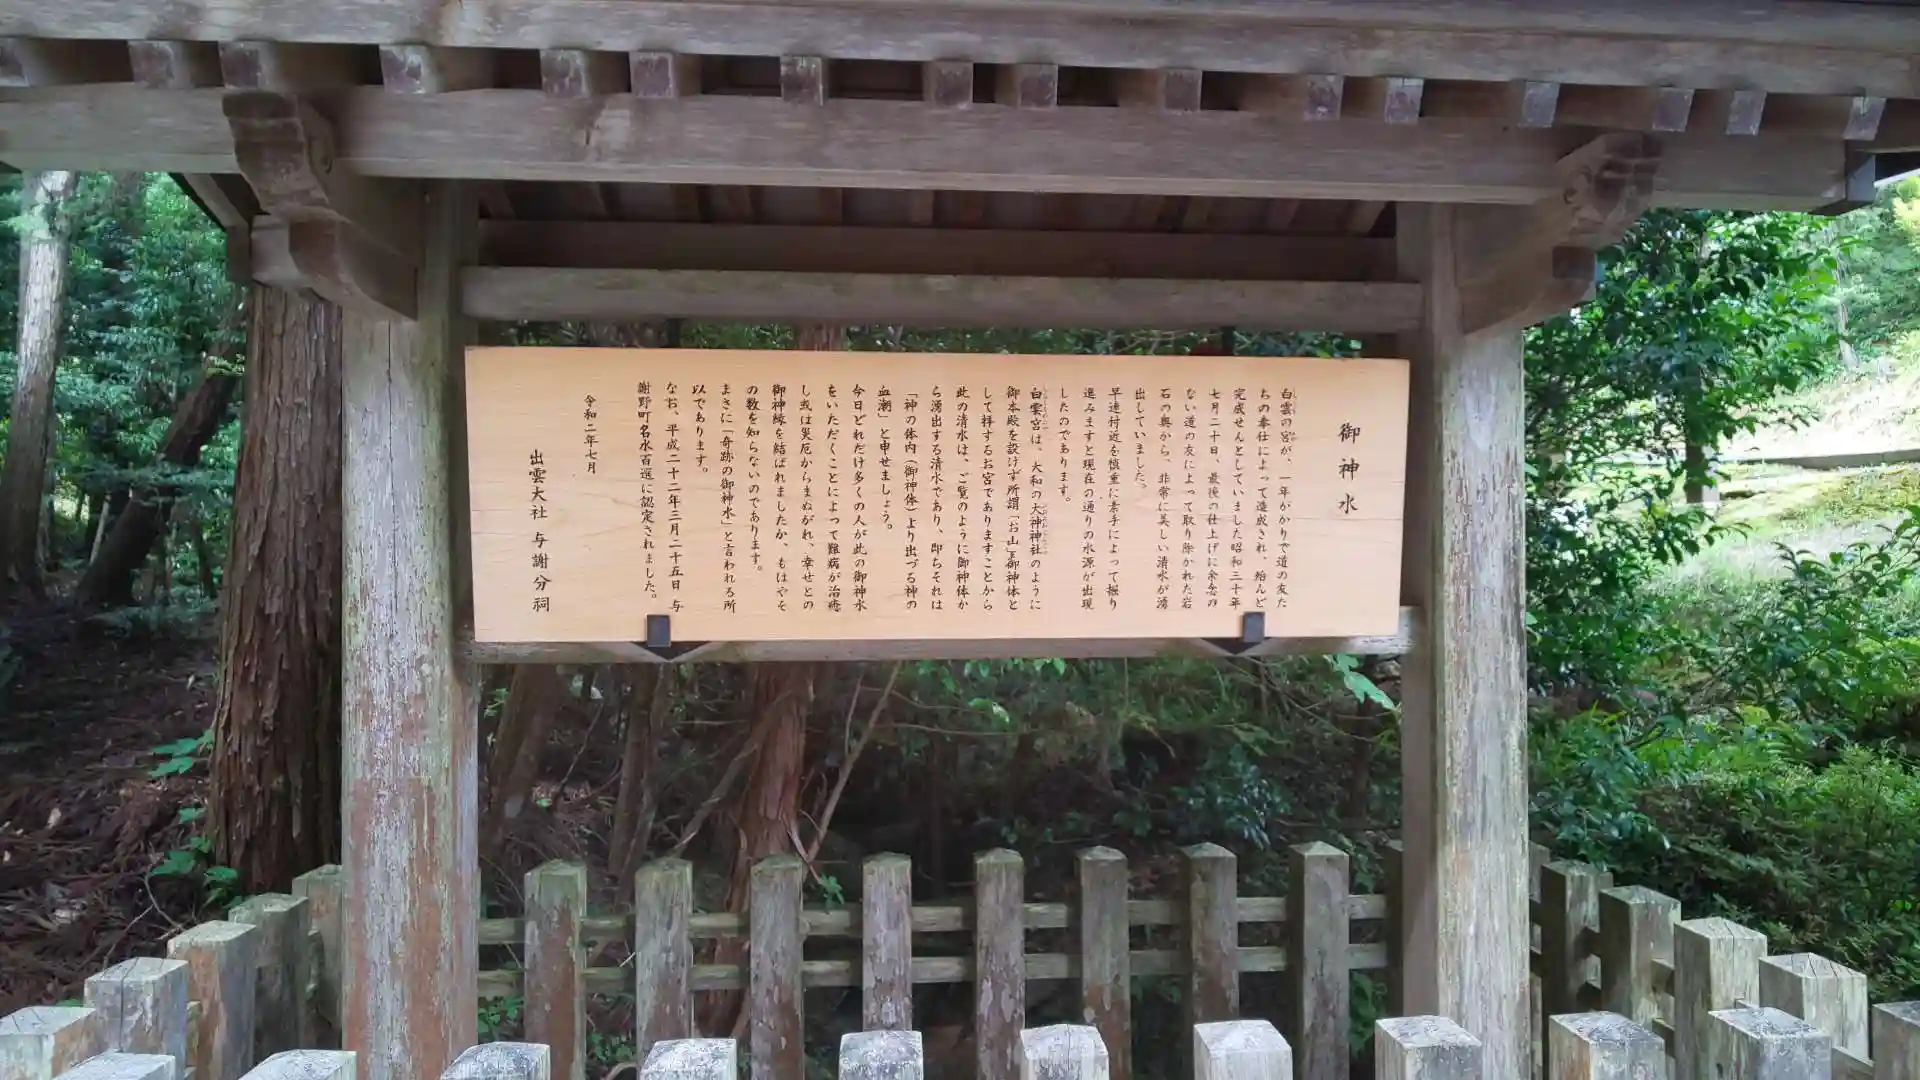 御神水
白雲の宮が、一年がかりで道の友た
ちの奉仕によって造成され、殆んど
完成せんとしていました昭和三十年
七月二十日、最後の仕上げに余念の
ない道の友によって取り除かれた岩
石の奥から、非常に美しい清水が湧
出していました。
早速付近を慎重に素手によって掘り
進みますと現在の通りの水源が出現
したのであります。
白雲宮は、大和の大神神社のように
御本殿を設けず所謂「お山」を御神体と
して拝するお宮でありますことから
此の清水は、ご覧のように御神体か
ら湧出する清水であり、即ちそれは
「神の体内(御神体)より出づる神の
血潮」と申せましょう。
今日どれだけ多くの人が此の御神水
をいただくことによって難病が治癒
し或は災厄からまぬがれ、幸せとの
御神縁を結ばれましたか、もはやそ
の数を知らないのであります。
まさに「奇跡の御神水」と言われる所
以であります。
なお、平成二十二年三月二十五日 与
謝野町名水百選に認定されました。
令和二年七月
出雲大社 与謝分祠